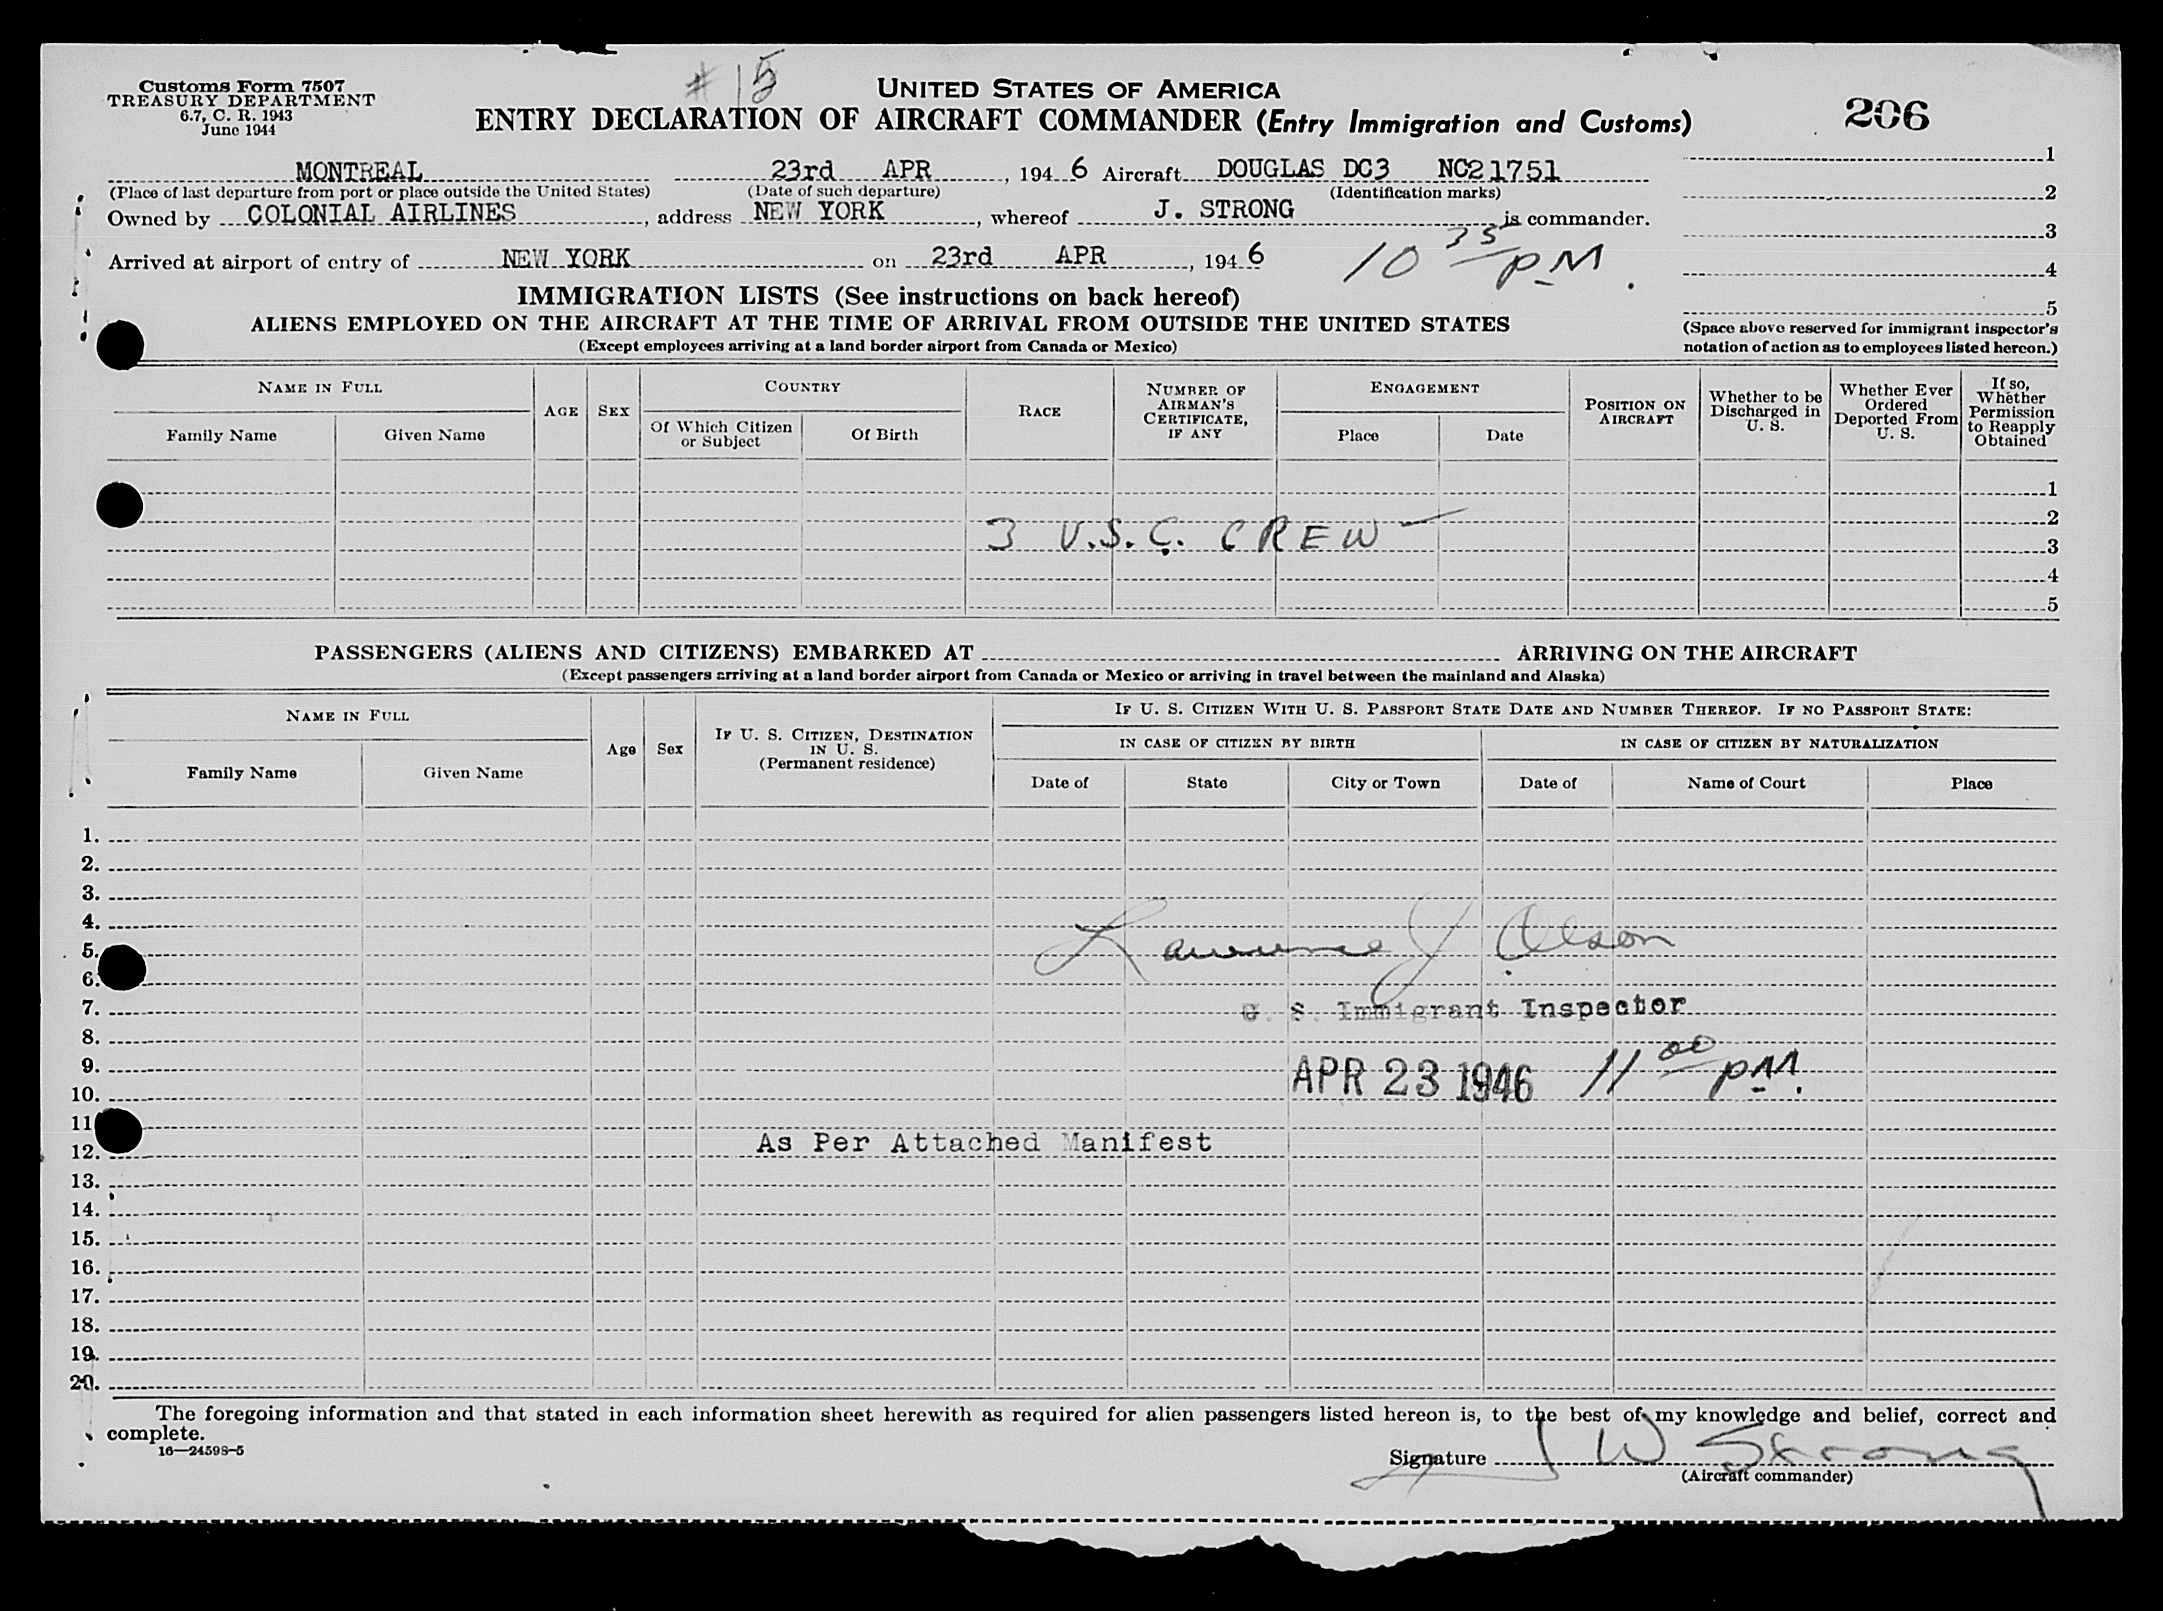 # 15
Customs Form 7507
TREASURY DEPARTMENT
6.7, C. R. 1943
June 1944
UNITED STATES OF AMERICA
ENTRY DECLARATION OF AIRCRAFT COMMANDER (Entry Immigration and Customs)
206
MONTREAL 23rd APR, 1946 Aircraft DOUGLAS DC3 NC21751
(Place of last departure from port or place outside the United States) (Date of such departure) (Identification marks)
Owned by COLONIAL AIRLINES, address NEW YORK, whereof J. STRONG is commander.
Arrived at airport of entry of NEW YORK on 23rd APR, 1946 10 35 PM.
1
2
3
4
5
(Space above reserved for immigrant inspector's
notation of action as to employees listed hereon.)
IMMIGRATION LISTS (See instructions on back hereof)
ALIENS EMPLOYED ON THE AIRCRAFT AT THE TIME OF ARRIVAL FROM OUTSIDE THE UNITED STATES
(Except employees arriving at a land border airport from Canada or Mexico)
NAME IN FULL
Family Name Given Name
AGE
SEX
COUNTRY
Of Which Citizen or Subject
Of Birth
RACE
NUMBER OF AIRMAN'S CERTIFICATE, IF ANY
ENGAGEMENT
Place Date
POSITION ON AIRCRAFT
Whether to be Discharged in U. S.
Whether Ever Ordered Deported From U. S.
If so, Whether Permission to Reapply Obtained
1
2
3 U.S.C. CREW
3
4
5
PASSENGERS (ALIENS AND CITIZENS) EMBARKED AT ARRIVING ON THE AIRCRAFT
(Except passengers arriving at a land border airport from Canada or Mexico or arriving in travel between the mainland and Alaska)
NAME IN FULL
Family Name Given Name
Age
Sex
IF U. S. CITIZEN, DESTINATION IN U. S.
(Permanent residence)
IF U. S. CITIZEN WITH U. S. PASSPORT STATE DATE AND NUMBER THEREOF. IF NO PASSPORT STATE:
IN CASE OF CITIZEN BY BIRTH IN CASE OF CITIZEN BY NATURALIZATION
Date of State City or Town Date of Name of Court Place
1.
2.
3.
4.
5. Lawrence J Olson
6.
7. U. S. Immigrant Inspector
8.
9. APR 23 1946 11 00 PM.
10.
11
12. As Per Attached Manifest
13.
14.
15.
16.
17.
18.
19.
20.
The foregoing information and that stated in each information sheet herewith as required for alien passengers listed hereon is, to the best of my knowledge and belief, correct and
complete.
16—24598-5
Signature J W Strong
(Aircraft commander)